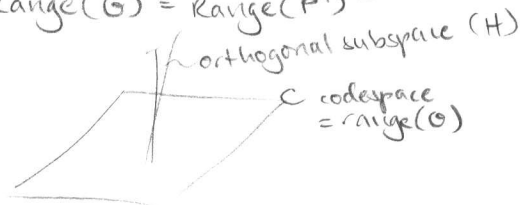 Range(G) = Range(P
orthogonal subspace (H)
C codespace
= range(G)